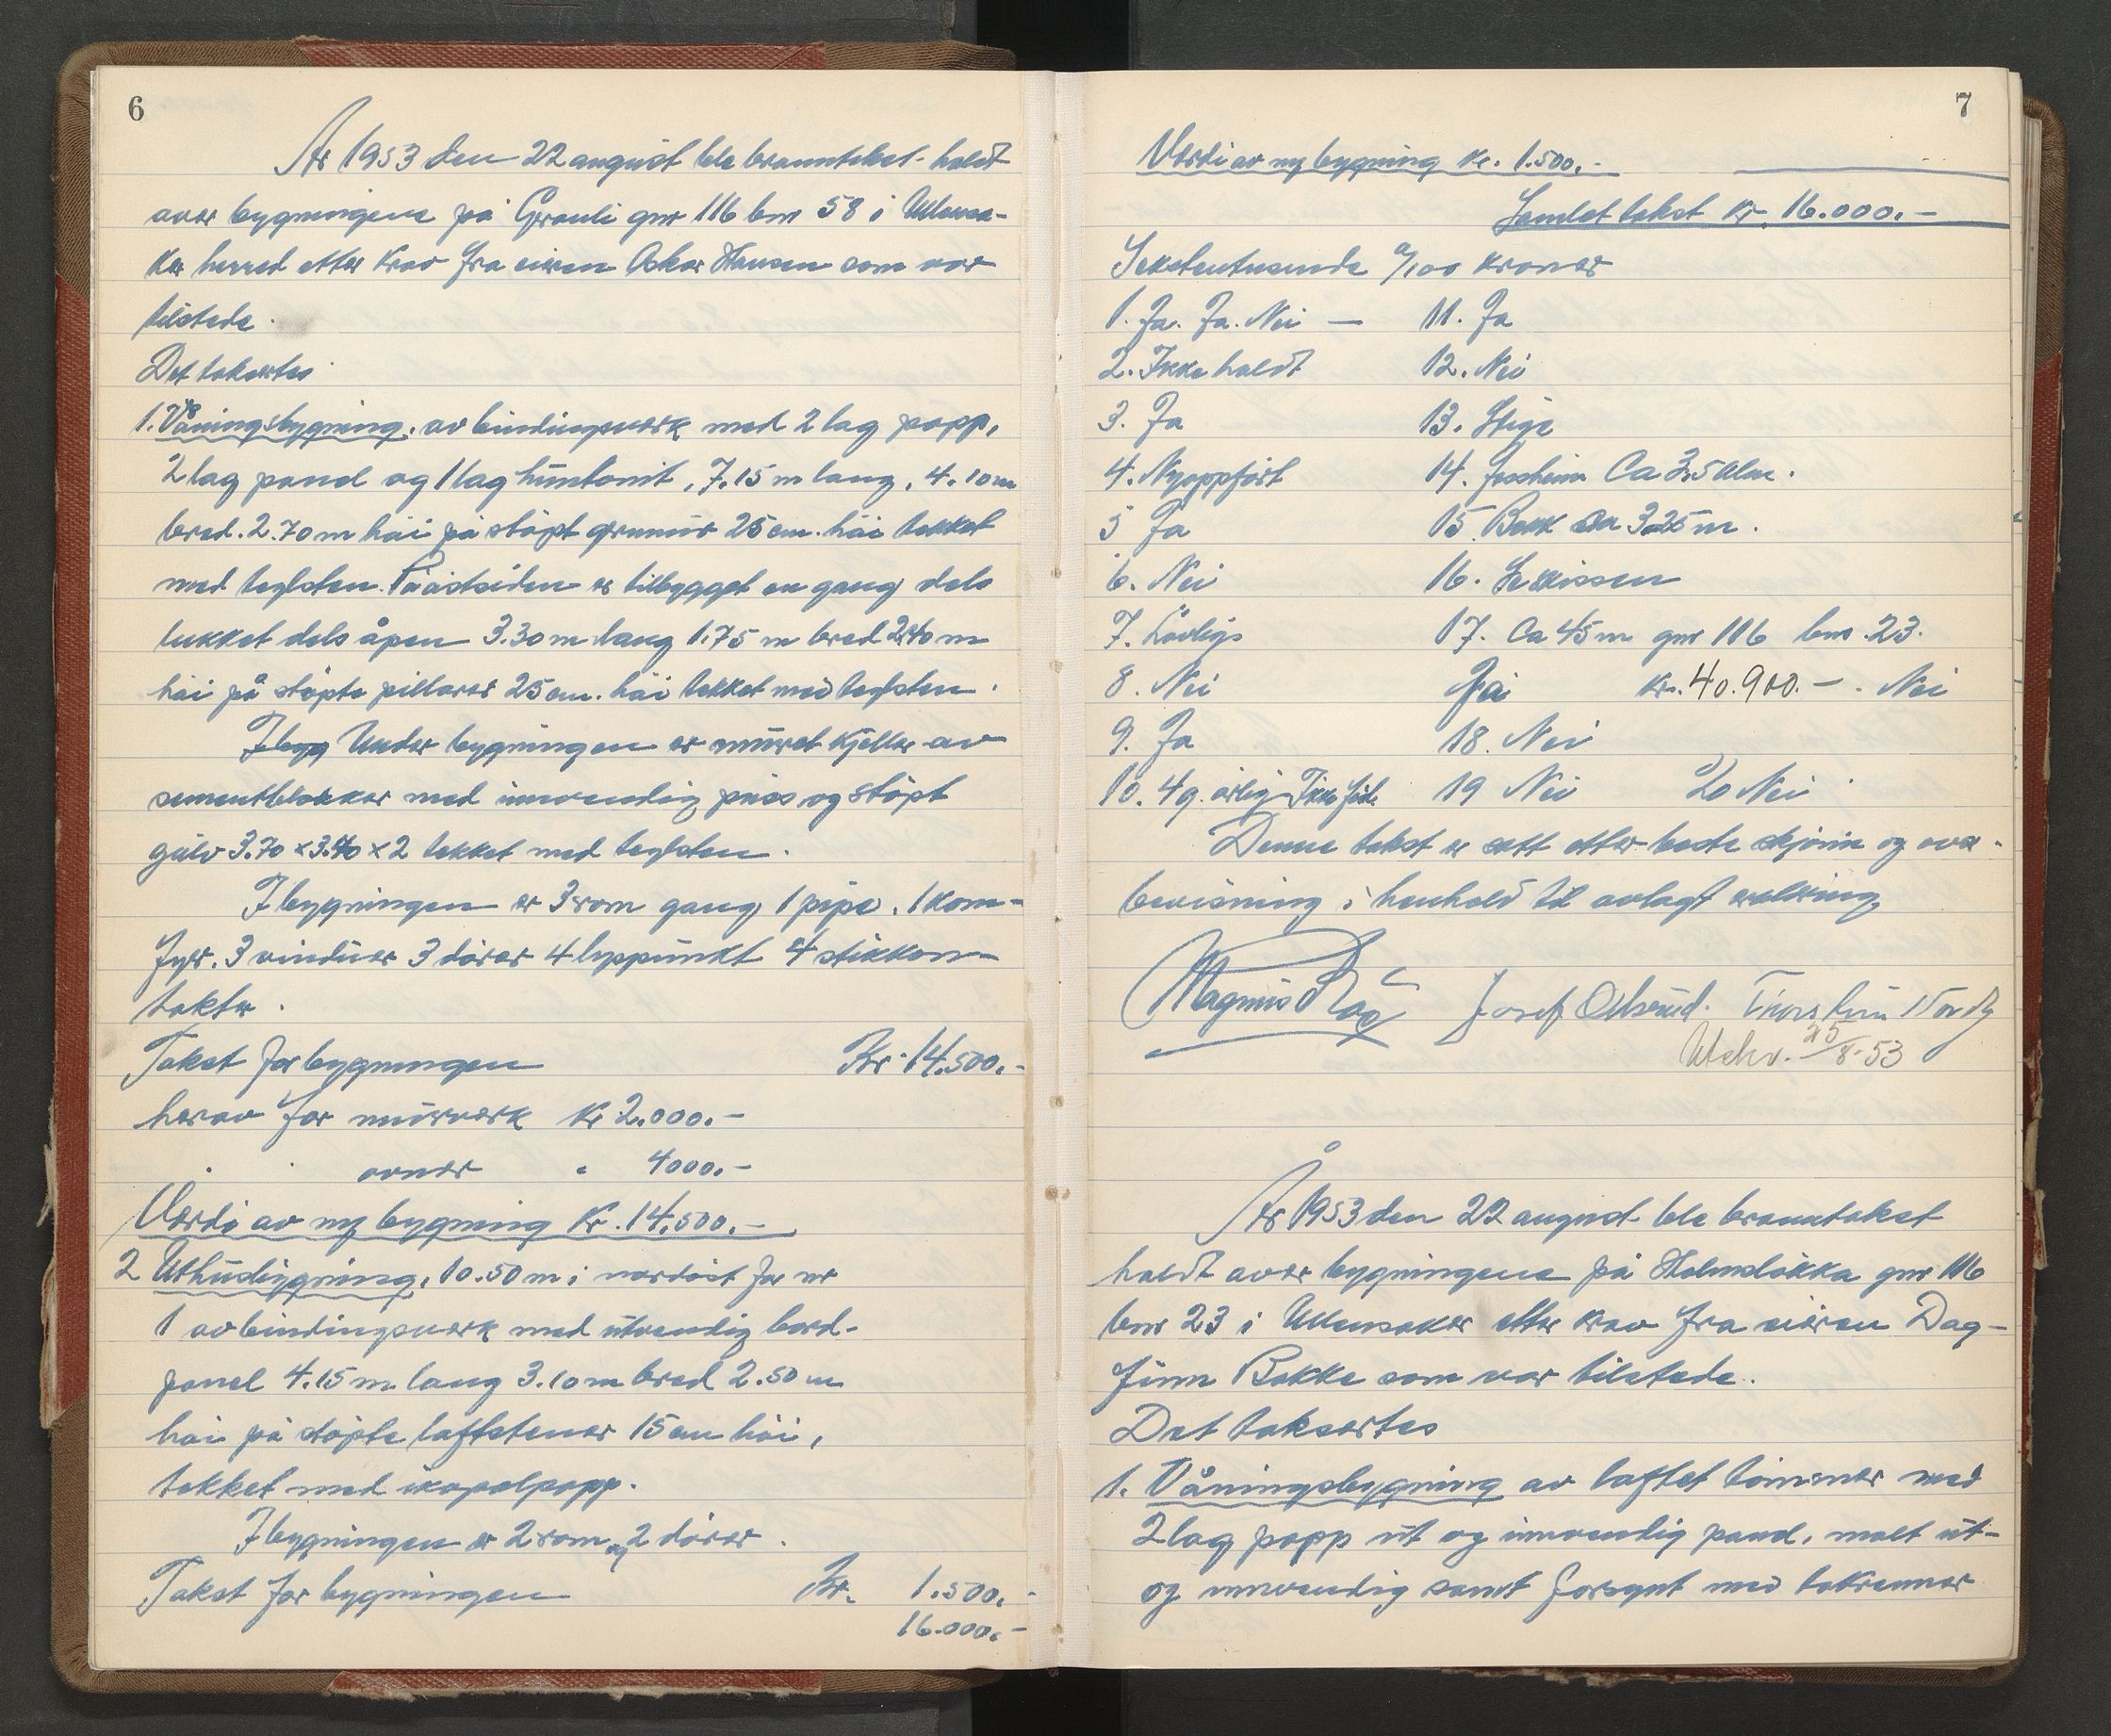 6
År 1953 den 22 august ble branntakst holdt
over bygningene på Granli gnr 116 bnr 58 i Ullensa-
ker herred etter krav fra eieren Oskar Hansen som var
tilstede.
Det taksertes
1. Våningsbygning, av bindingsverk med 2 lag papp,
2 lag panel og 1 lag huntonit, 7.15 m lang, 4.10 m
bred. 2.70 m høi på støpt grunnmur 25 cm. høi tekket
med teglsten. På østsiden er tilbygget en gang dels
lukket dels åpen 3.30 m lang 1.75 m bred 2.40 m
høi på støpte pillarer 25 cm. høi tekket med teglsten.
I bygg Under bygningen er muret kjeller av
sementblokker med innvendig puss og støpt
gulv 3.70 x 3.40 x 2 tekket med teglsten.
I bygningen er 3 rom gang 1 pipe. 1 kom-
fyr. 3 vinduer 3 dører 4 lyspunkt 4 stikkon-
takter.
Takst for bygningen Kr. 14.500.-
herav for murverk Kr 2.000.-
" " ovner " 4000.-
Verdi av ny bygning Kr. 14.500.-
2 Uthusbygning, 10.50 m i nordøst for nr
1 av bindingsverk med utvendig bord-
panel 4.15 m lang 3.10 m bred 2.50 m
høi på støpte loftstener 15 cm høi,
tekket med icopalpapp.
I bygningen er 2 rom og 2 dører.
Takst for bygningen Kr. 1.500.-
16.000.-
7
Verdi av ny bygning Kr. 1.500.-
Samlet takst Kr. 16.000.-
Sekstentusende 0/100 kroner
1. Ja. Ja. Nei — 11. Ja
2. Ikke holdt 12. Nei
3. Ja 13. Stige
4. Nyoppført 14. Jessheim Ca 3,5 klm.
5 Ja 15. Bekk ca 325 m.
6. Nei 16.
7. Lovlige 17. Ca 45 m gnr 116 bnr. 23.
8. Nei Ja Kr. 40.900.- . Nei
9. Ja 18. Nei
10. 4 g. årlig Ikke 19 Nei 20 Nei
Denne takst er satt etter beste skjønn og over-
bevisning i henhold til avlagt erklæring
Magnus Josef
Utskr. 25/8-53
År 1953 den 22 august ble branntakst
holdt over bygningene på Holmsløkka gnr 116
bnr 23 i Ullensaker etter krav fra eieren Dag-
finn Bakke som var tilstede.
Det taksertes
1. Våningsbygning av laftet tømmer med
2 lag papp ut og innvendig panel, malt ut-
og innvendig samt forsynt med takrenner